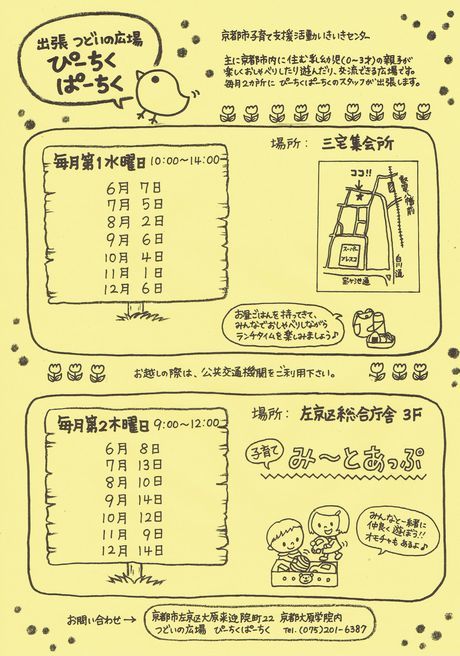 出張 つどいの広場
ぴーちく
ぱーちく
京都市子育て支援活動いきいきセンター
主に京都市内に住む乳幼児(0〜3才)の親子が
楽しくおしゃべりしたり遊んだり、交流できる広場です。
毎月2カ所に ぴーちくぱーちくのスタッフが出張します。
毎月第1水曜日 10:00〜14:00
6月 7日
7月 5日
8月 2日
9月 6日
10月 4日
11月 1日
12月 6日
場所: 三宅集会所
ココ!!
スーパー
フレスコ
白川通
宝ヶ池通
お昼ごはんを持ってきて、
みんなでおしゃべりしながら
ランチタイムを楽しみましょう♪
お越しの際は、公共交通機関をご利用下さい。
毎月第2木曜日 9:00〜12:00
6月 8日
7月 13日
8月 10日
9月 14日
10月 12日
11月 9日
12月 14日
場所: 左京区総合庁舎 3F
子育て
み〜とあっぷ
みんなと一緒に
仲良く遊ぼう!!
オモチャもあるよ♪
お問い合わせ→
京都市左京区大原来迎院町22 京都大原学院内
つどいの広場 ぴーちくぱーちく Tel.(075)201-6387